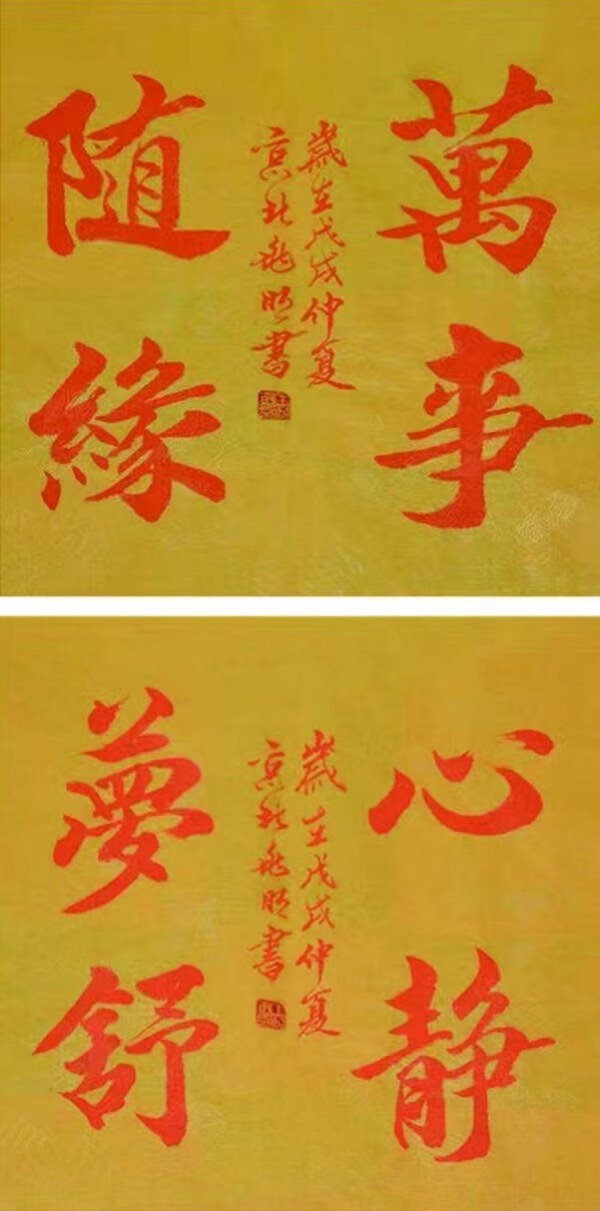 萬事
歲在戊戌仲夏
京北兆明書
随緣
心静
歲在戊戌仲夏
京北兆明書
夢舒